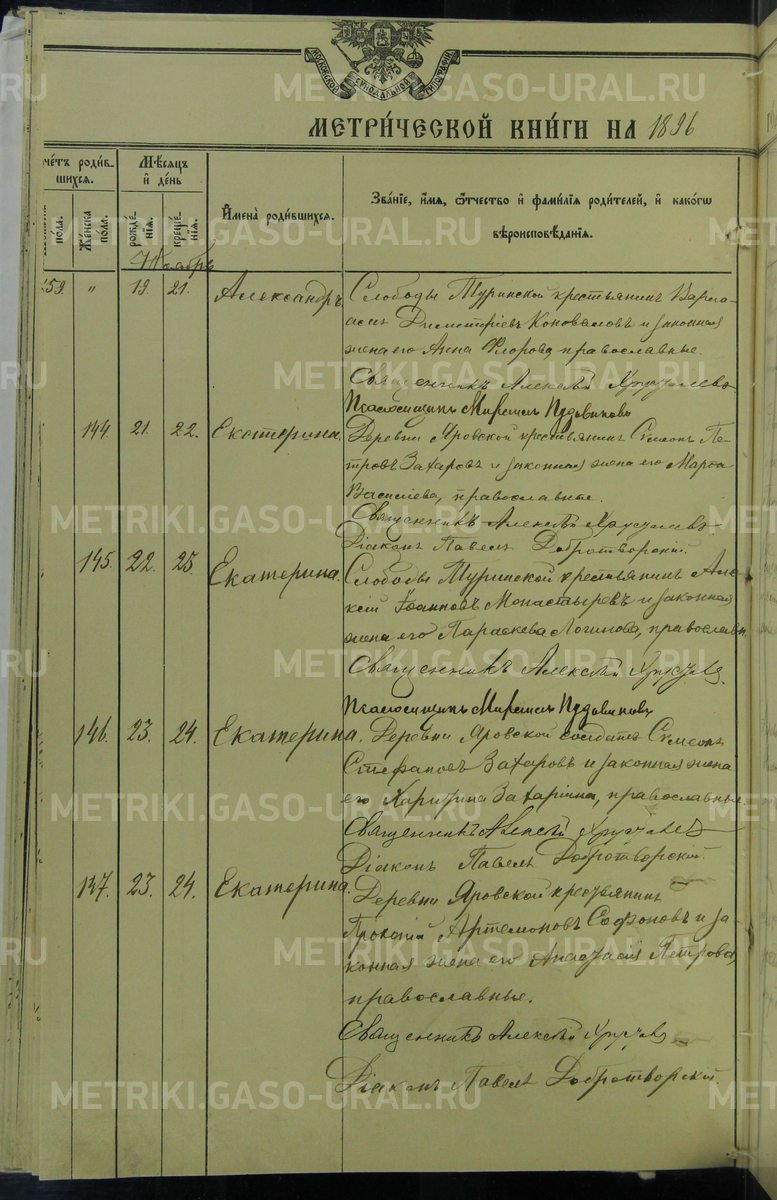 МОСКОВСКОЙ СѴНОДАЛЬНОЙ ТИПОГРАФІИ
МЕТРИ́ЧЕСКОЙ КНИ́ГИ НА 1896
че́тъ роди́в-
шихся.
Мѣ́сяцъ
и҆ де́нь
Имена̀ роди́вшихся.
Зва́нїе, и҆́мя, ѻ҆́тчество и҆ фами́лїя роди́телей, и҆ како́гѡ
вѣроисповѣ́данїя.
по́ла.
Же́нска
по́ла.
рожде́-
нїя.
креще́-
нїя.
Ноябрь
259. " 19. 21. Александръ. Слободы Туринской крестьянинъ Варла-
амъ Димитріевъ Коноваловъ и законная
жена его Анна Флорова, православные.
Священникъ Алексѣй Хрущевъ
Псаломщикъ
144. 21. 22. Екатерина. Деревни Яровской крестьянинъ Симеонъ Пе-
тровъ Захаровъ и законная жена его Марѳа
Василіева, православные.
Священникъ Алексѣй
Діаконъ Павелъ Добротворскій.
145. 22. 25. Екатерина. Слободы Туринской крестьянинъ Алек-
сій Іоанновъ Монастыревъ и законная
жена его Параскева Логинова, православн.
Священникъ Алексѣй
Псаломщикъ
146. 23. 24. Екатерина. Деревни Яровской солдатъ Симеонъ
Стефановъ Захаровъ и законная жена
его Харитина Захаріина, православные
Священникъ Алексѣй
Діаконъ Павелъ Добротворскій.
147. 23. 24. Екатерина. Деревни Яровской крестьянинъ
Прокопій Артемоновъ Софоновъ и за-
конная жена его Анастасія Петрова,
православные.
Священникъ Алексѣй
Діаконъ Павелъ Добротворскій.
METRIKI.GASO-URAL.RU